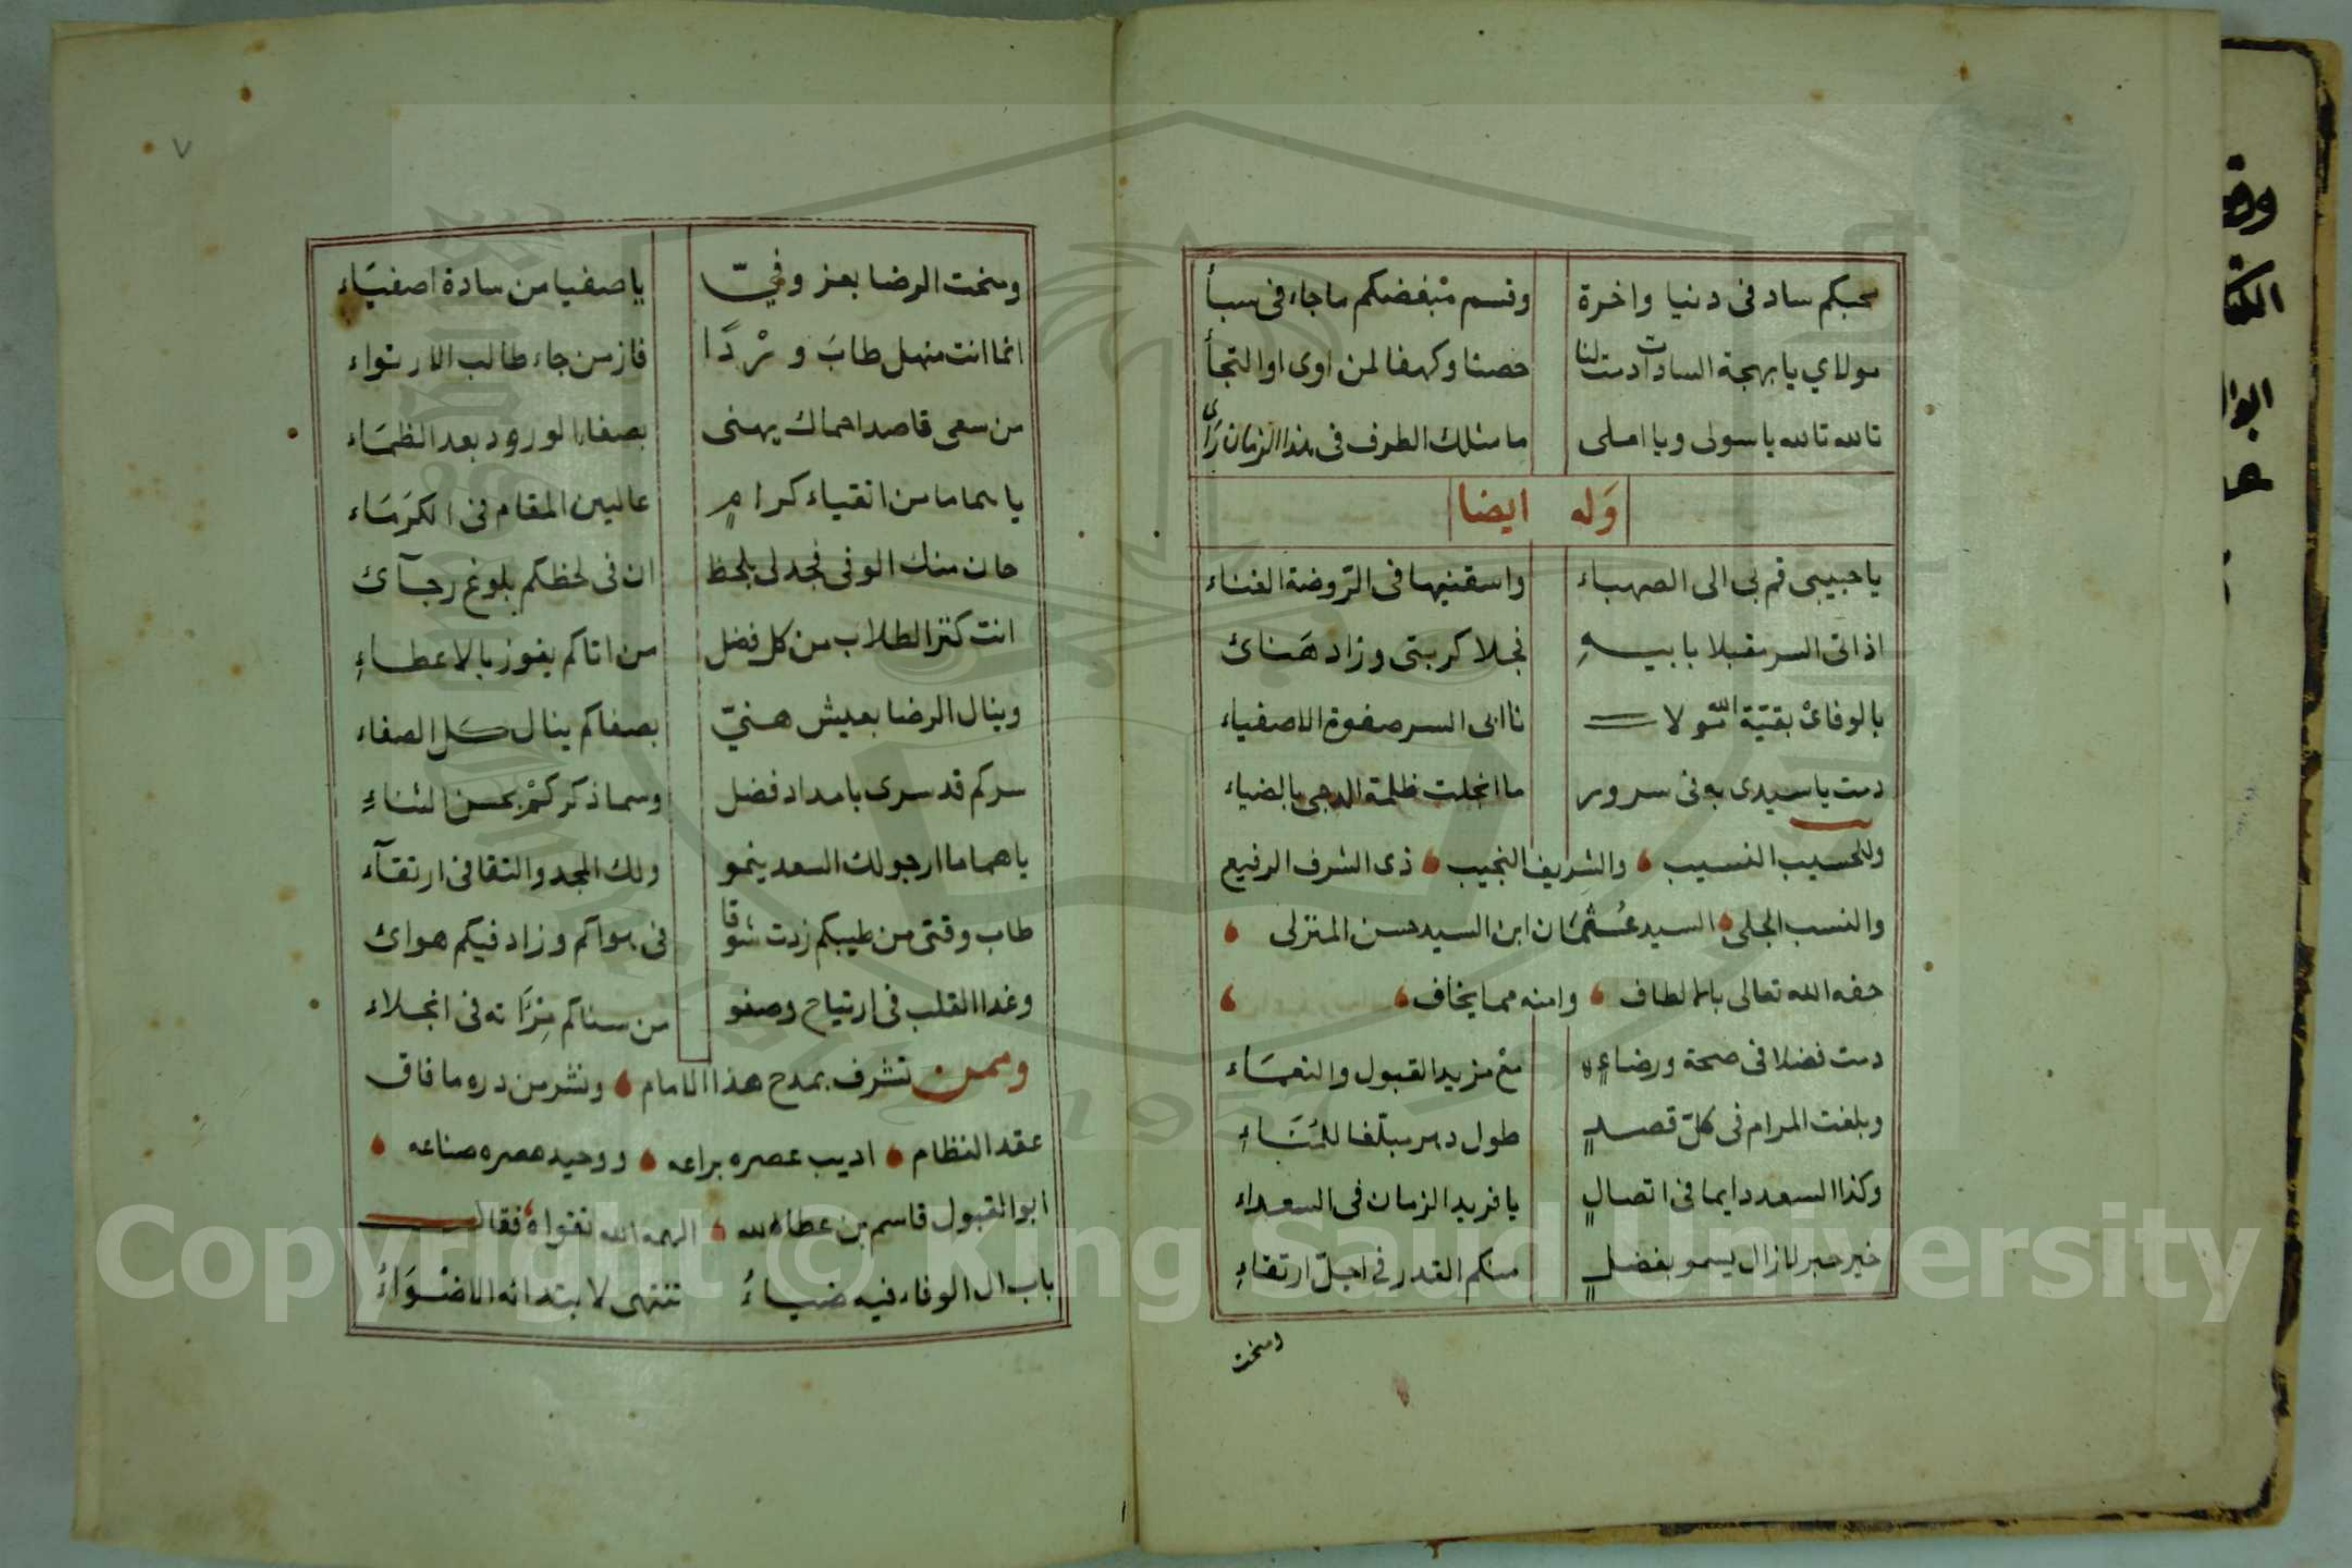 محبكم ساد فى دنيا واخرة وقسم مبغضكم ماجاء فى سبأ
مولاي يا بهجة السادات دمت لنا حصنا وكهفا لمن اوى او التجأ
تالله تالله ياسولى ويا املى ما مثلك الطرف فى هذا الزمان رأى
وَله ايضا
ياحبيبى قم بى الى الصهباء واسقنيها فى الرّوضة الغناء
اذ اتى السر مقبلا بابيهِ فجلا كربتى وزاد هَنائ
بالوفائ بقيّة السّولا ابى السر صفوة الاصفياء
دمت ياسيدى به فى سرور ما انجلت ظلمة الدجى بالضياء
وللحسيب النسيب والشريف النجيب ذى الشرف الرفيع
والنسب الجلى السيد عُثمَان ابن السيد حسن المنزلى
حفه الله تعالى بالالطاف وامنه مما يخاف
دمت فضلا فى صحة ورضاءٍ مع مزيد القبول والنعمَاء
وبلغت المرام فى كلّ قصدٍ طول دهر مبلّغا للمُنَاءِ
وكذا السعد دايما فى اتصالٍ يا فريد الزمان فى السعداء
خير حبر لازال يسمو بفضلٍ منكم القدر فى اجلّ ارتقاءِ
ومنحت
٧
ومنحت الرضا بعز وفيّ ياصفيا من سادة اصفيَاء
انما انت منهل طابَ وِرْدًا فاز من جاء طالب الارتواء
من سعى قاصدا حماك يهنى بصفاء الورود بعد الظمَاء
ياهماما من اتقياء كرامٍ عاليين المقام فى الكرَمَاء
حان منك الوفى فجد لى بلحظ ان فى لحظكم بلوغ رجآئ
انت كنز الطلاب من كل فضل من اتاكم يفوز بالاعطاءِ
وينال الرضا بعيش هنيّ بصفاكم ينال كل الصفاء
سركم قد سرى بامداد فضل وسما ذكركمْ بحسن الثناءِ
ياهماما ارجو لك السعد ينمو ولك المجد والتقا فى ارتقآء
طاب وقتى من طيبكم زدت شوقا فى هواكم وزاد فيكم هوائ
وغدا القلب فى ارتياح وصفو من سناكم مِرْآته فى انجلاء
وممن تشرف بمدح هذا الامام ونثر من دره ما فاق
عقد النظام اديب عصره براعه ووحيد مصره صناعه
ابو القبول قاسم بن عطاالله الهمه الله تقواه فقال
باب ال الوفاء فيه ضياءُ تنتهى لابتدائه الاضْوَاءُ
وقف
Copyright © King Saud University